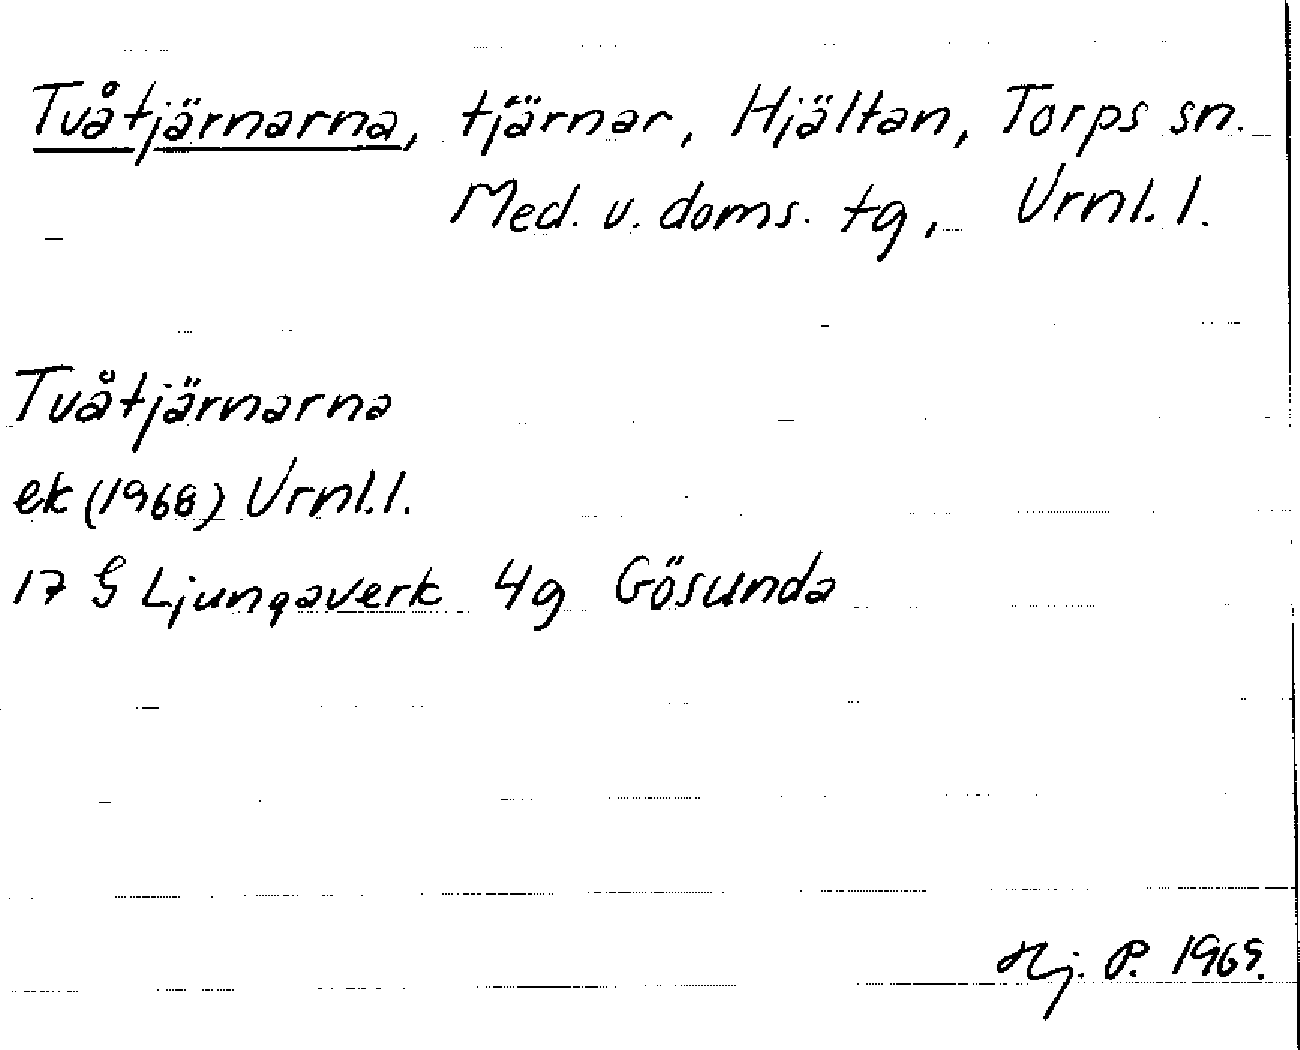 Tvåtjärnarna, tjärnar, Hjältan, Torps sn.
Med. v. doms. tg, Vrnl. l.
Tvåtjärnarna
ek (1968) Vrnl. l.
17 G Ljungaverk 4g Gösunda
Hj. P. 1969.